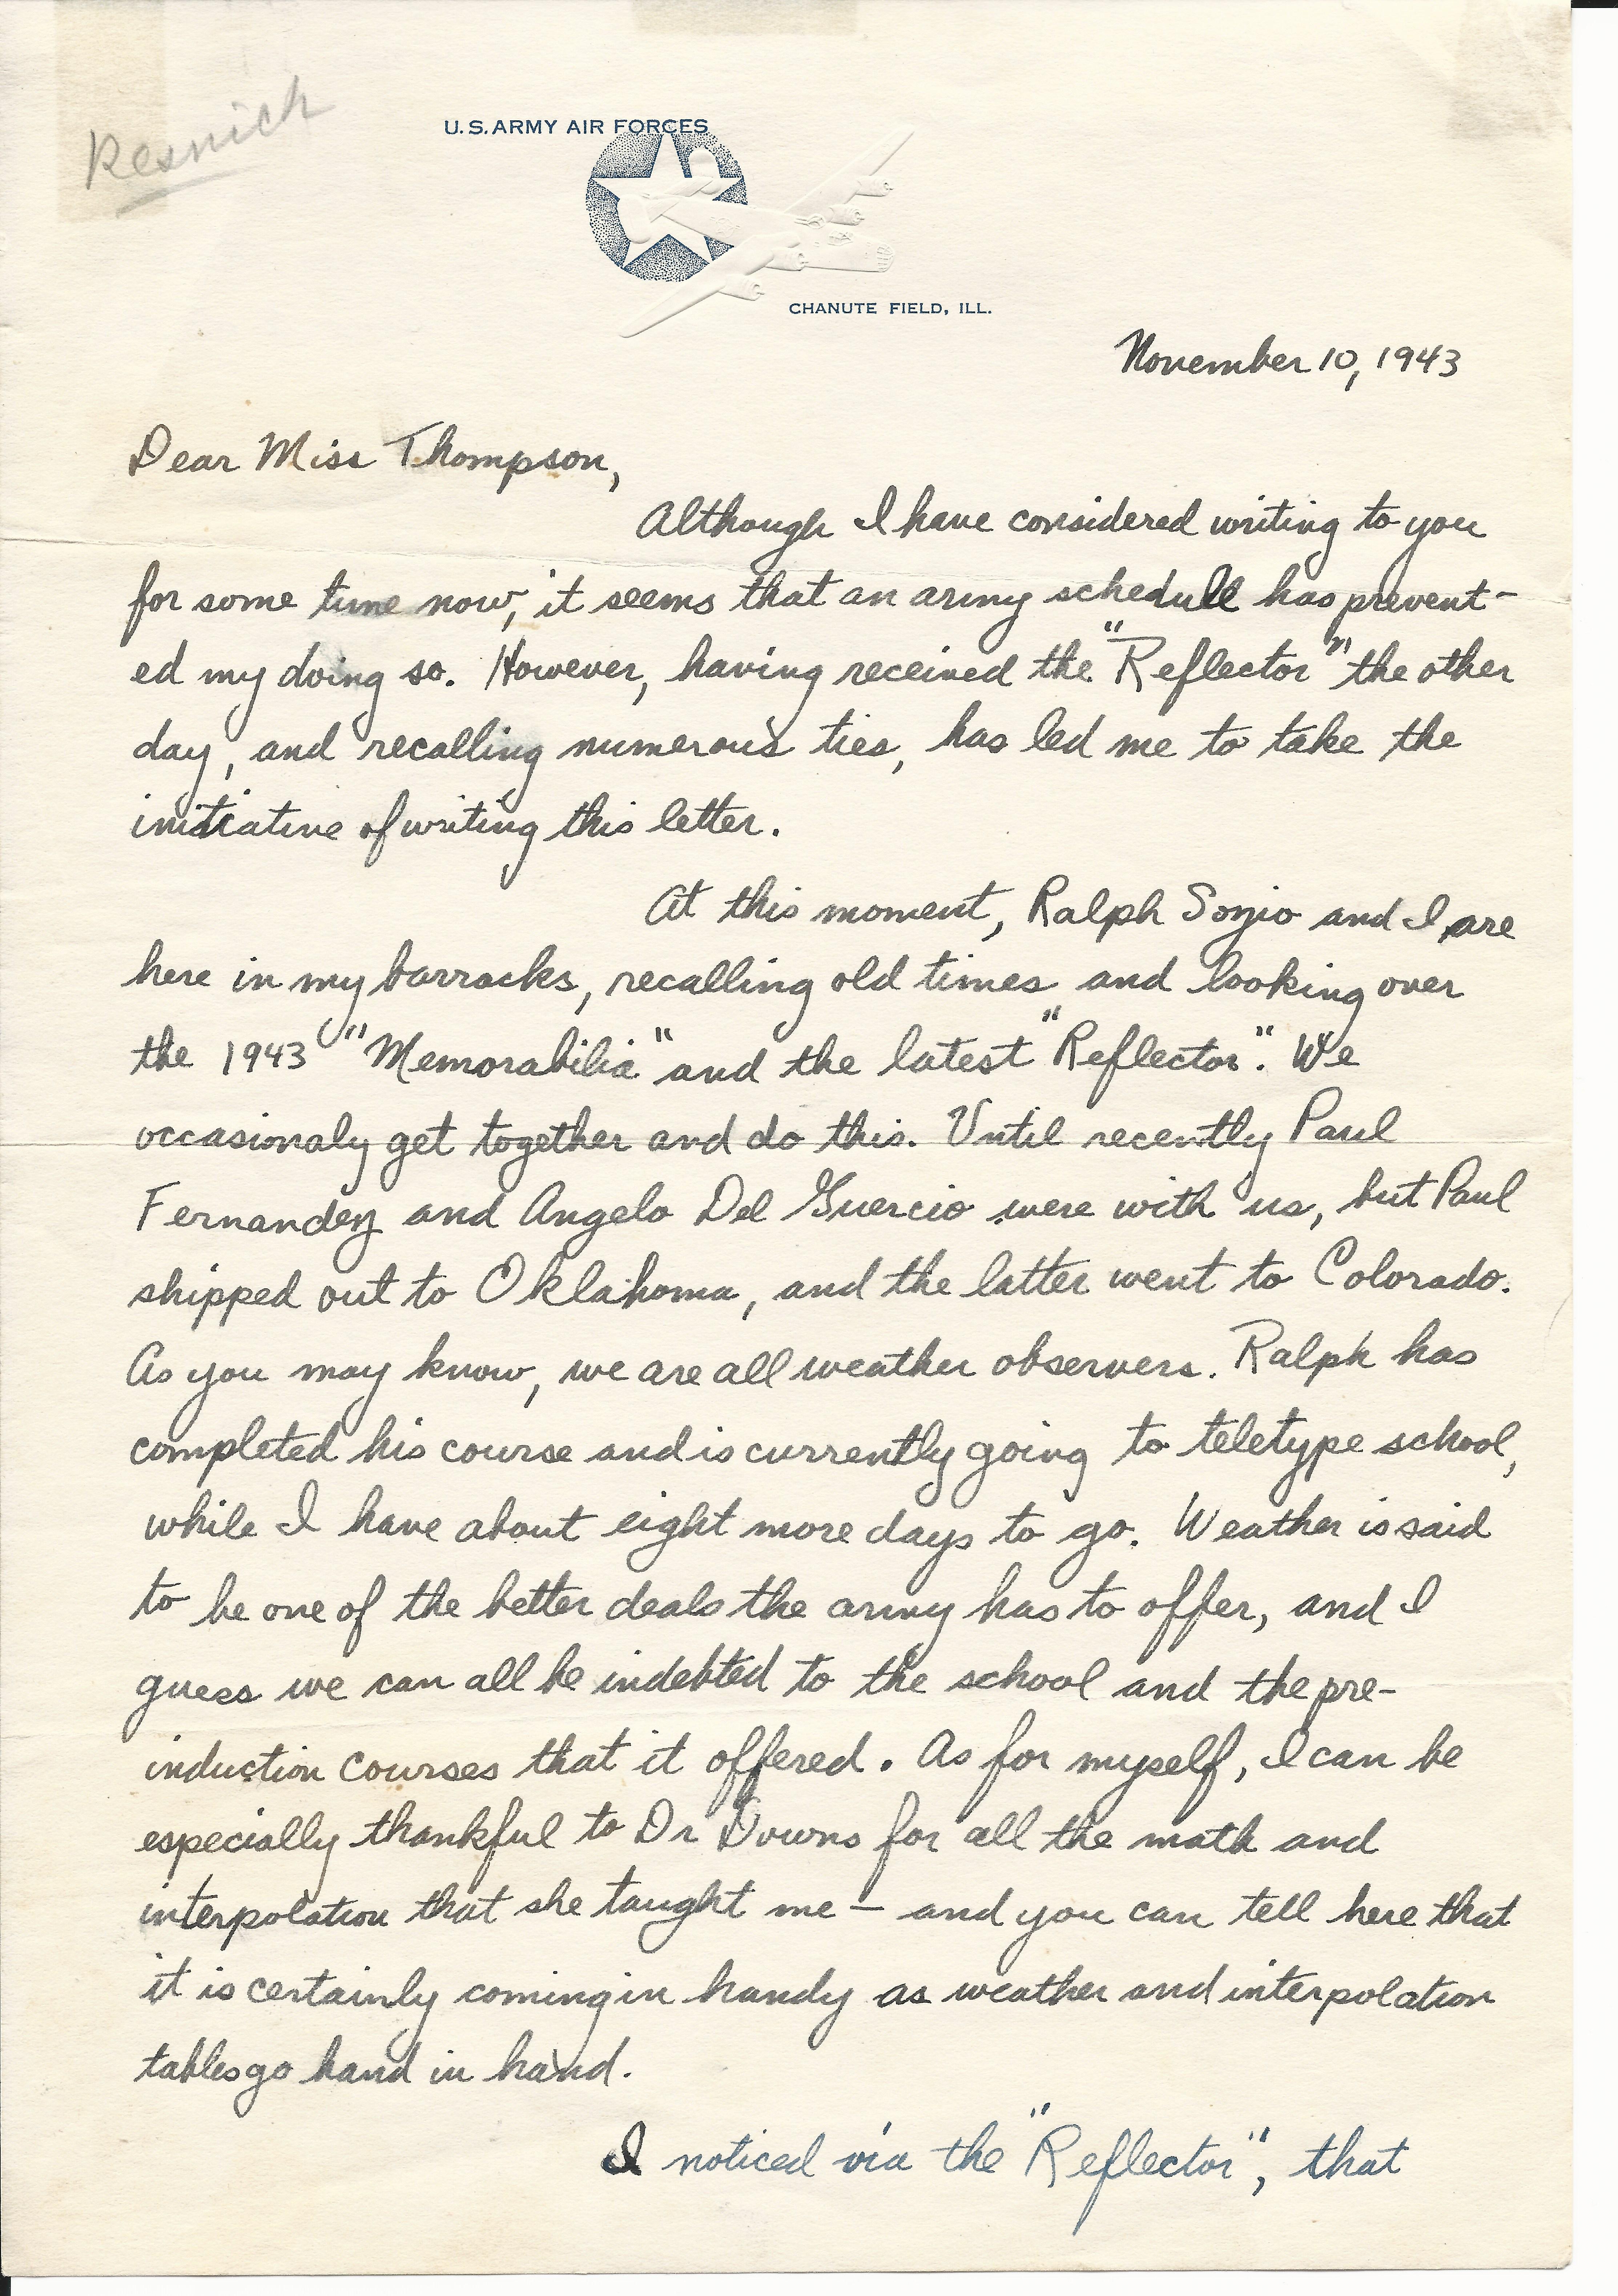 Resnick
U.S. ARMY AIR FORCES
CHANUTE FIELD, ILL.
November 10, 1943
Dear Miss Thompson,
Although I have considered writing to you
for some time now, it seems that an army schedule has prevent-
ed my doing so. However, having received the "Reflector" the other
day, and recalling numerous ties, has led me to take the
initiative of writing this letter.
At this moment, Ralph and I are
here in my barracks, recalling old times and looking over
the 1943 "Memorabilia" and the latest "Reflector". We
occasionaly get together and do this. Until recently Paul
Fernandez and Angelo Del Guercio were with us, but Paul
shipped out to Oklahoma, and the latter went to Colorado.
As you may know, we are all weather observers. Ralph has
completed his course and is currently going to teletype school,
while I have about eight more days to go. Weather is said
to be one of the better deals the army has to offer, and I
guess we can all be indebted to the school and the pre-
induction courses that it offered. As for myself, I can be
especially thankful to Dr Downs for all the math and
interpolation that she taught me – and you can tell here that
it is certainly coming in handy as weather and interpolation
tables go hand in hand.
I noticed via the "Reflector", that